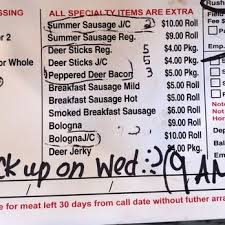 SSING
ALL SPECIALTY ITEMS ARE EXTRA
Rush
Summer Sausage J/C 2 $10.00 Roll
r 2
Summer Sausage Reg. $9.00 Roll
Deer Sticks Reg. 5 $4.00 Pkg.
or Whole
Deer Sticks J/C 5 $5.00 Pkg.
Emp.
Peppered Deer Bacon 3 $5.00 Pkg.
Breakfast Sausage Mild $5.00 Roll
Breakfast Sausage Hot $5.00 Roll
Smoked Breakfast Sausage $6.00 Roll
Bologna $9.00 Roll
Bologna J/C $10.00 Roll
Deer Jerky $4.00 Pkg.
ck up on Wed :: 9 AM
e for meat left 30 days from call date without futher arra